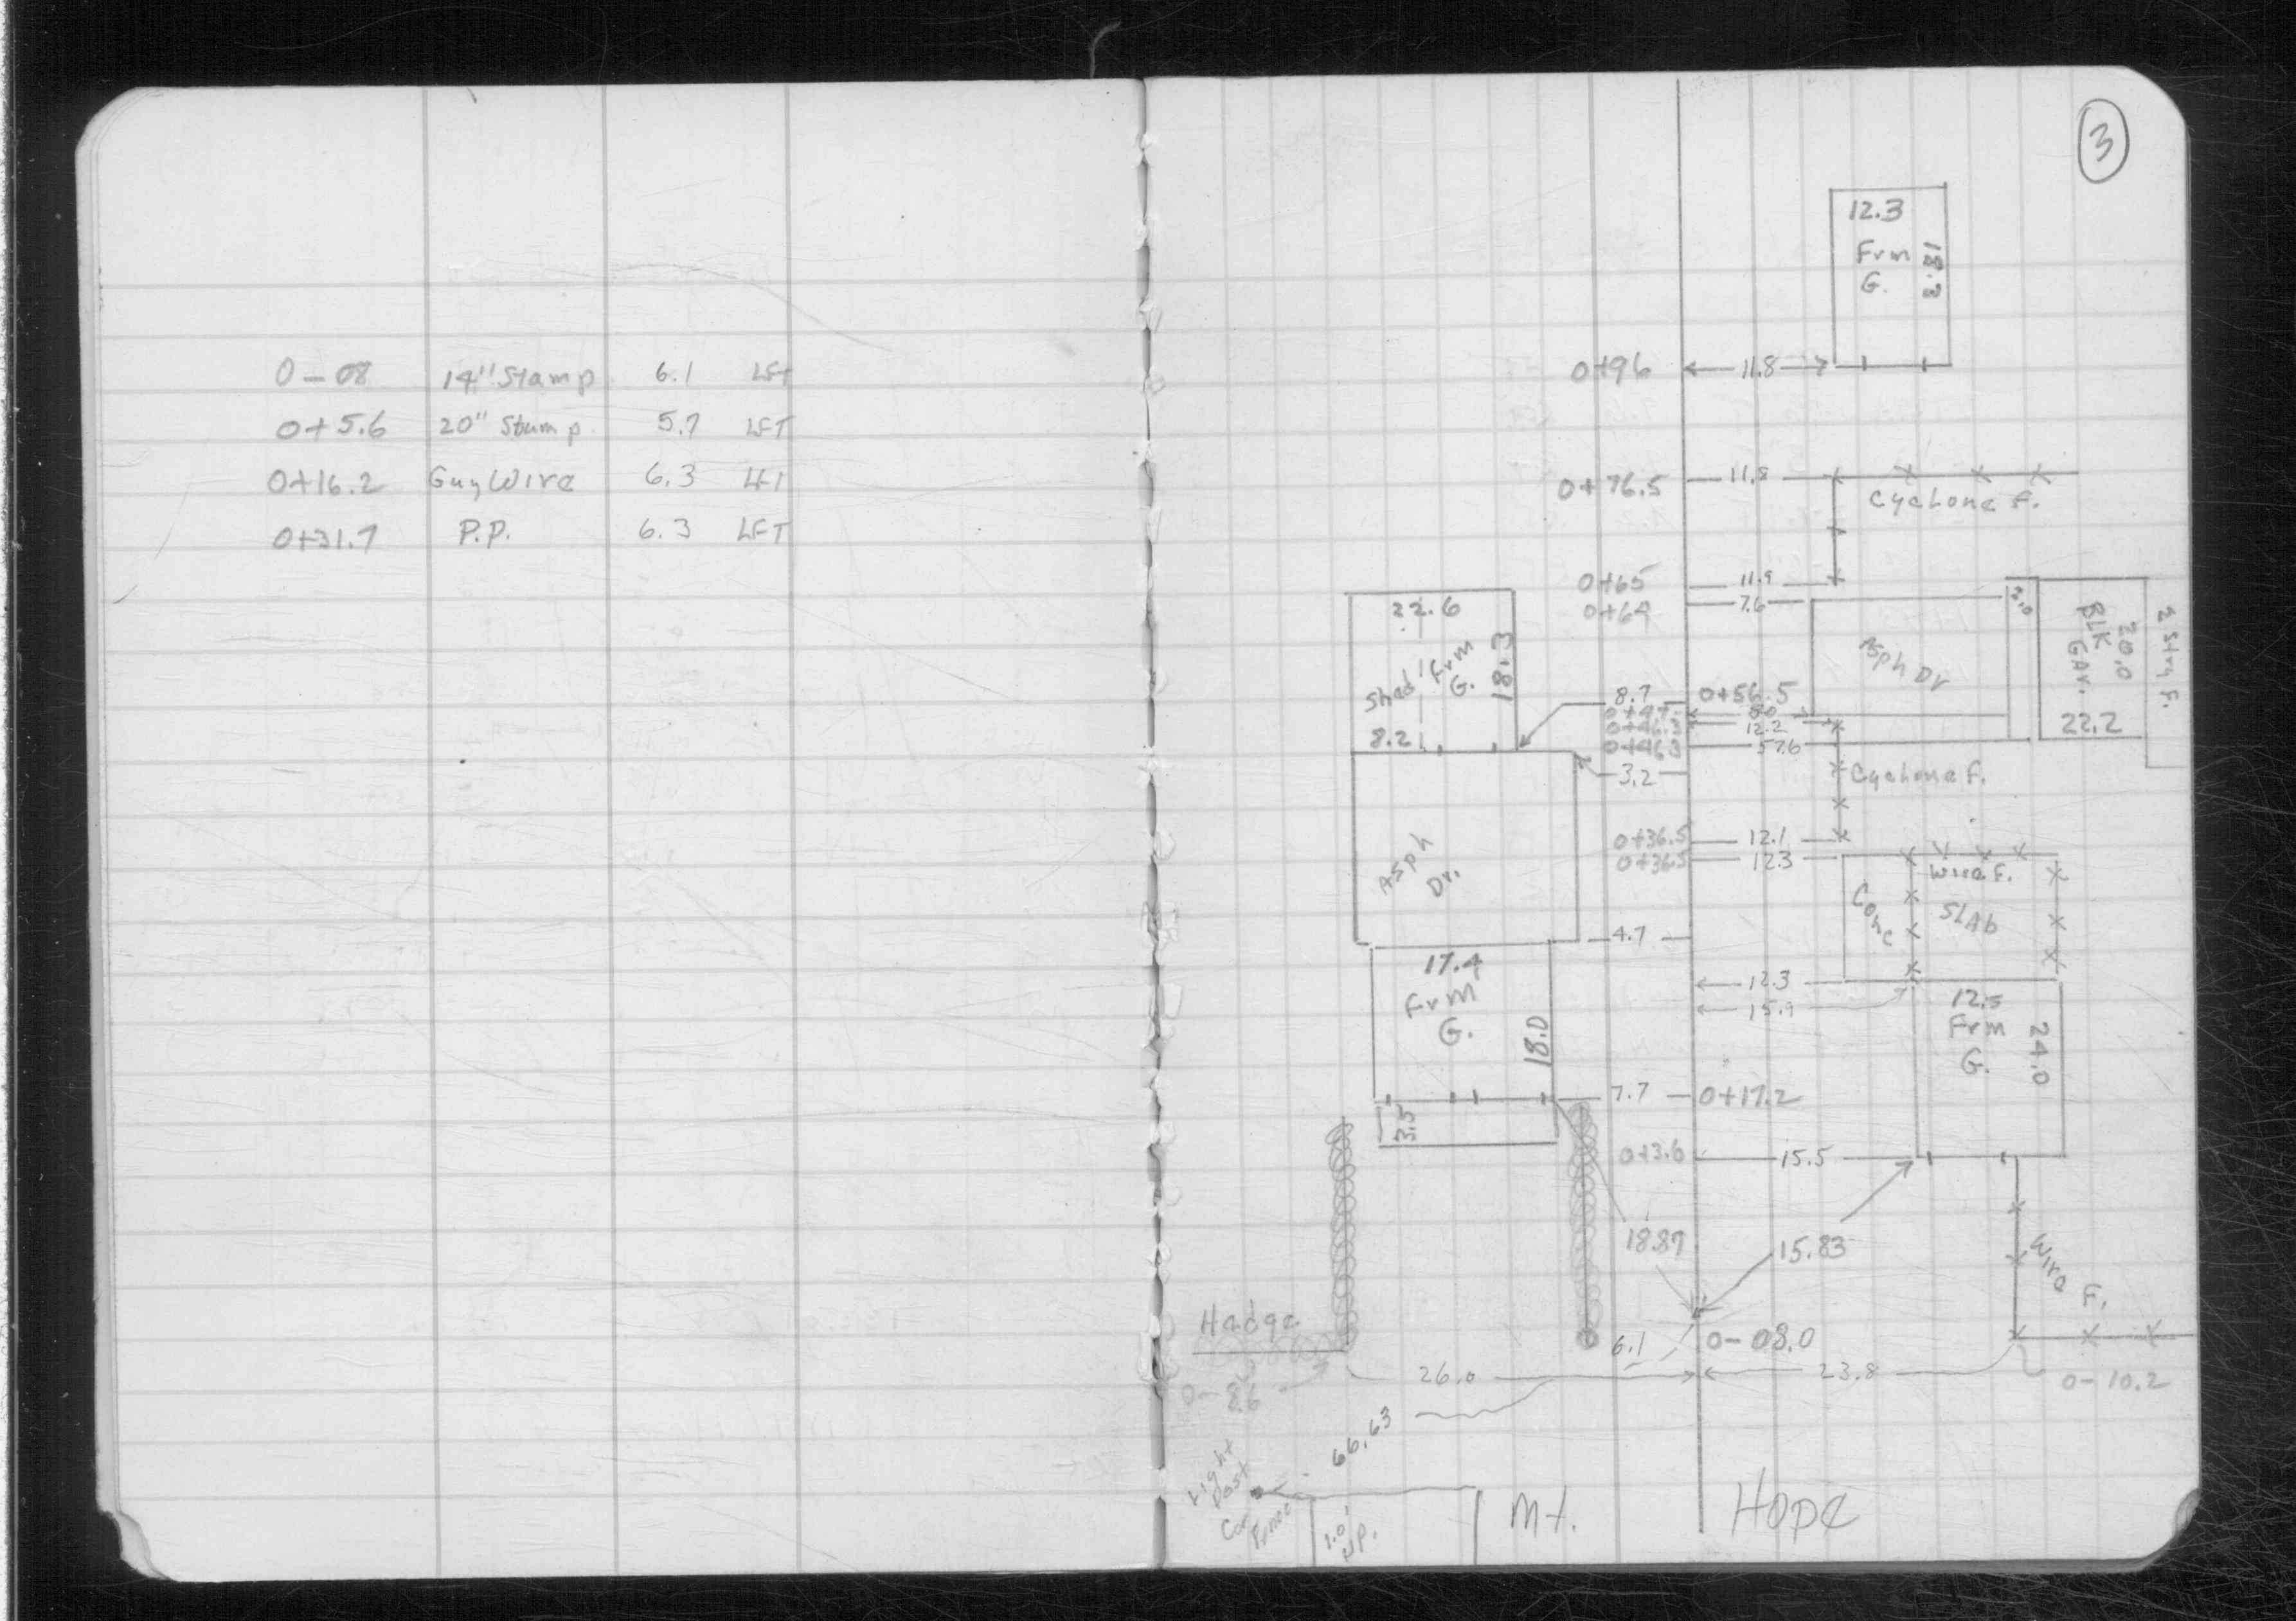 0-08 14" Stamp 6.1 LFT
0+5.6 20" Stump 5.7 LFT
0+16.2 Guy Wire 6.3 LFT
0+31.7 P.P. 6.3 LFT
3
12.3
Frm
G.
18.3
0+96 11.8
0+76.5 11.8
Cyclone F.
0+65 11.9
0+64 7.6
22.6
Shed
Frm
G.
18.3
8.2
Asph Dr
2.0
BLK
GAr.
20.0
22.2
2 Stry F.
8.7 0+56.5
0+47 8.0
0+46.3 12.2
0+46.3 57.6
3.2
Cyclone F.
Asph
Dr.
0+36.5 12.1
0+36.5 12.3
Wire F.
Conc
SLAb
4.7
17.4
Frm
G.
18.0
12.3
15.9
12.5
Frm
G.
24.0
7.7 0+17.2
3.5
0+3.6 15.5
18.87
15.83
Wire F.
Hedge
6.1 0-08.0
0-8.6
26.0
23.8
0-10.2
66.63
Light
Post
Cor
Fence
1.0'
Mt. Hope